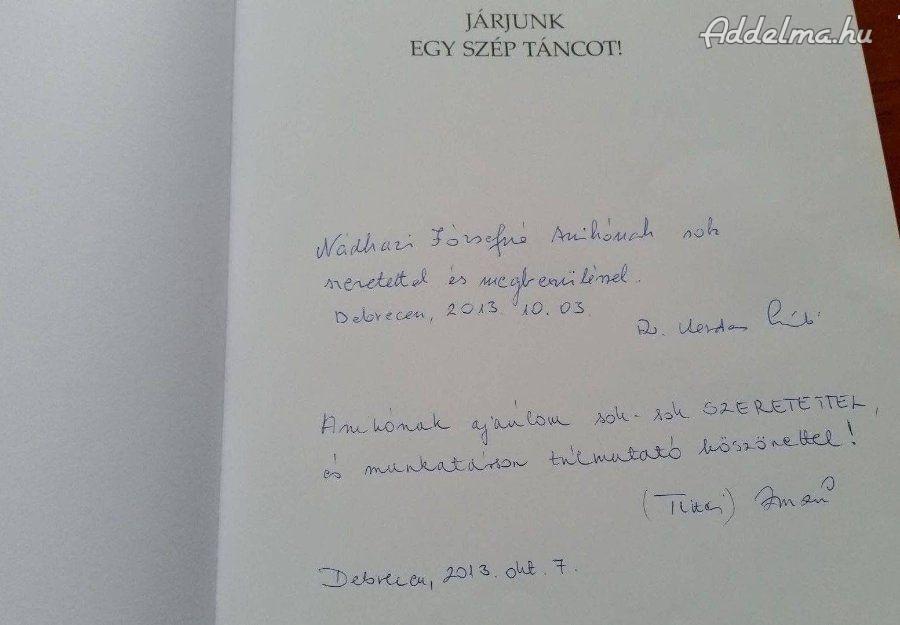 Addelma.hu
JÁRJUNK
EGY SZÉP TÁNCOT!
Nádhazi Józsefné Anikónak sok
szeretettel és megbecsüléssel.
Debrecen, 2013. 10. 03.
Dr.
Anikónak ajánlom sok-sok SZERETETTEL,
és munkatárson túlmutató köszönettel!
Debrecen, 2013. okt. 7.